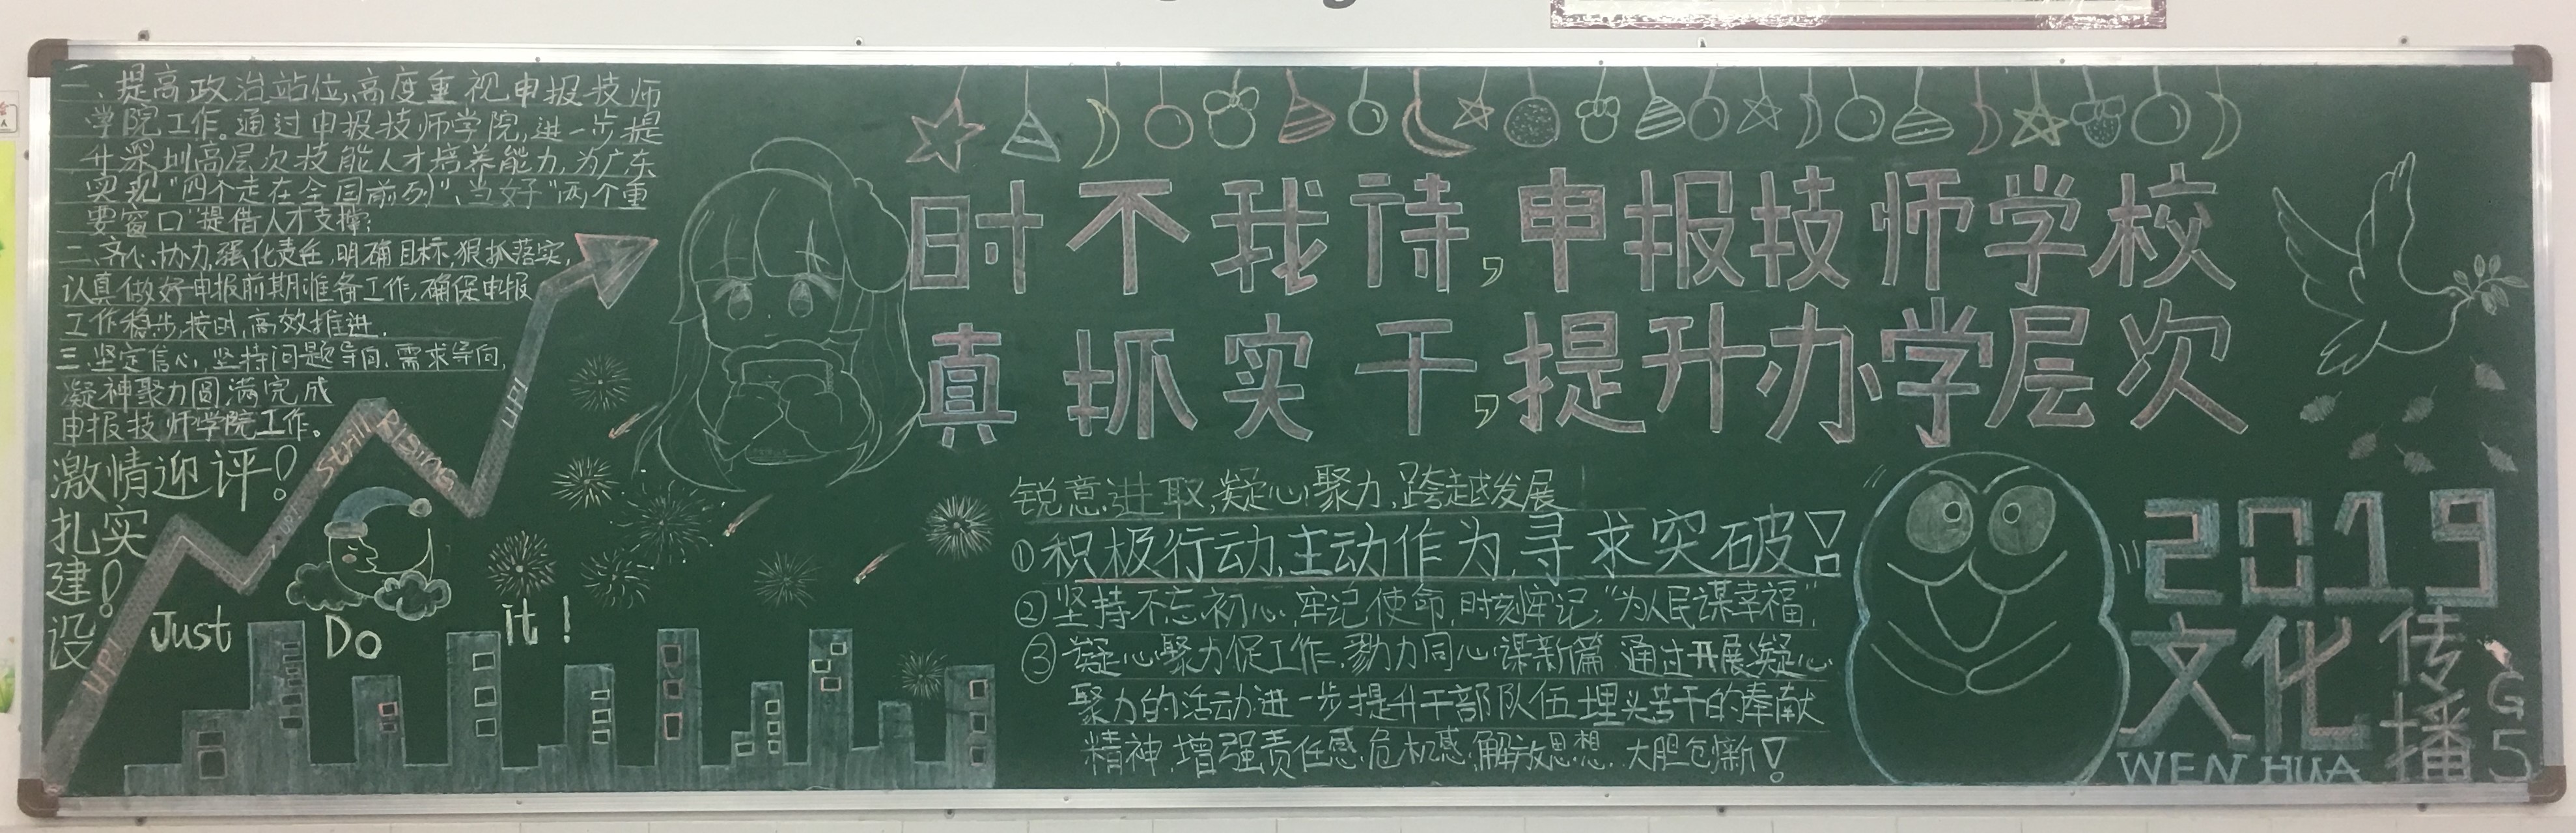 一、提高政治站位,高度重视申报技师
学院工作。通过申报技师学院,进一步提
升深圳高层次技能人才培养能力,为广东
实现"四个走在全国前列"、当好"两个重
要窗口"提借人才支撑;
二、齐心协力,强化责任,明确目标,狠抓落实,
认真做好申报前期准备工作,确保申报
工作稳步,按时,高效推进.
三.坚定信心,坚持问题导向.需求导向,
凝神聚力圆满完成
申报技师学院工作。
激情迎评!
扎实
建设!
UP!
UP!
Still Rising
UP!
Just Do it!
时不我待,申报技师学校
真抓实干,提升办学层次
锐意进取,凝心聚力,跨越发展
①积极行动,主动作为,寻求突破!
②坚持不忘初心,牢记使命,时刻牢记,"为人民谋幸福",
③凝心聚力促工作,勠力同心谋新篇 通过开展凝心
聚力的活动进一步提升干部队伍埋头苦干的奉献
精神,增强责任感,危机感,解放思想.大胆创新!
2019
文化传播
WEN HUA
G5